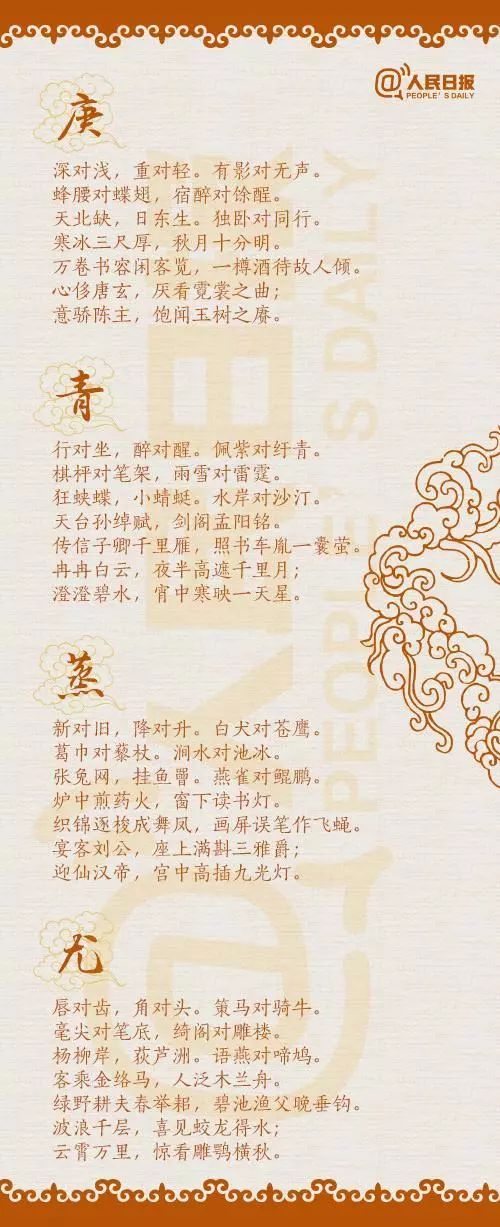 @人民日报
PEOPLE'S DAILY
庚
深对浅，重对轻。有影对无声。
蜂腰对蝶翅，宿醉对馀酲。
天北缺，日东生。独卧对同行。
寒冰三尺厚，秋月十分明。
万卷书容闲客览，一樽酒待故人倾。
心侈唐玄，厌看霓裳之曲；
意骄陈主，饱闻玉树之赓。
青
行对坐，醉对醒。佩紫对纡青。
棋枰对笔架，雨雪对雷霆。
狂蛱蝶，小蜻蜓。水岸对沙汀。
天台孙绰赋，剑阁孟阳铭。
传信子卿千里雁，照书车胤一囊萤。
冉冉白云，夜半高遮千里月；
澄澄碧水，宵中寒映一天星。
蒸
新对旧，降对升。白犬对苍鹰。
葛巾对藜杖。涧水对池冰。
张兔网，挂鱼罾。燕雀对鲲鹏。
炉中煎药火，窗下读书灯。
织锦逐梭成舞凤，画屏误笔作飞蝇。
宴客刘公，座上满斟三雅爵；
迎仙汉帝，宫中高插九光灯。
尤
唇对齿，角对头。策马对骑牛。
毫尖对笔底，绮阁对雕楼。
杨柳岸，荻芦洲。语燕对啼鸠。
客乘金络马，人泛木兰舟。
绿野耕夫春举耜，碧池渔父晚垂钩。
波浪千层，喜见蛟龙得水；
云霄万里，惊看雕鹗横秋。
@人民日报
PEOPLE'S DAILY